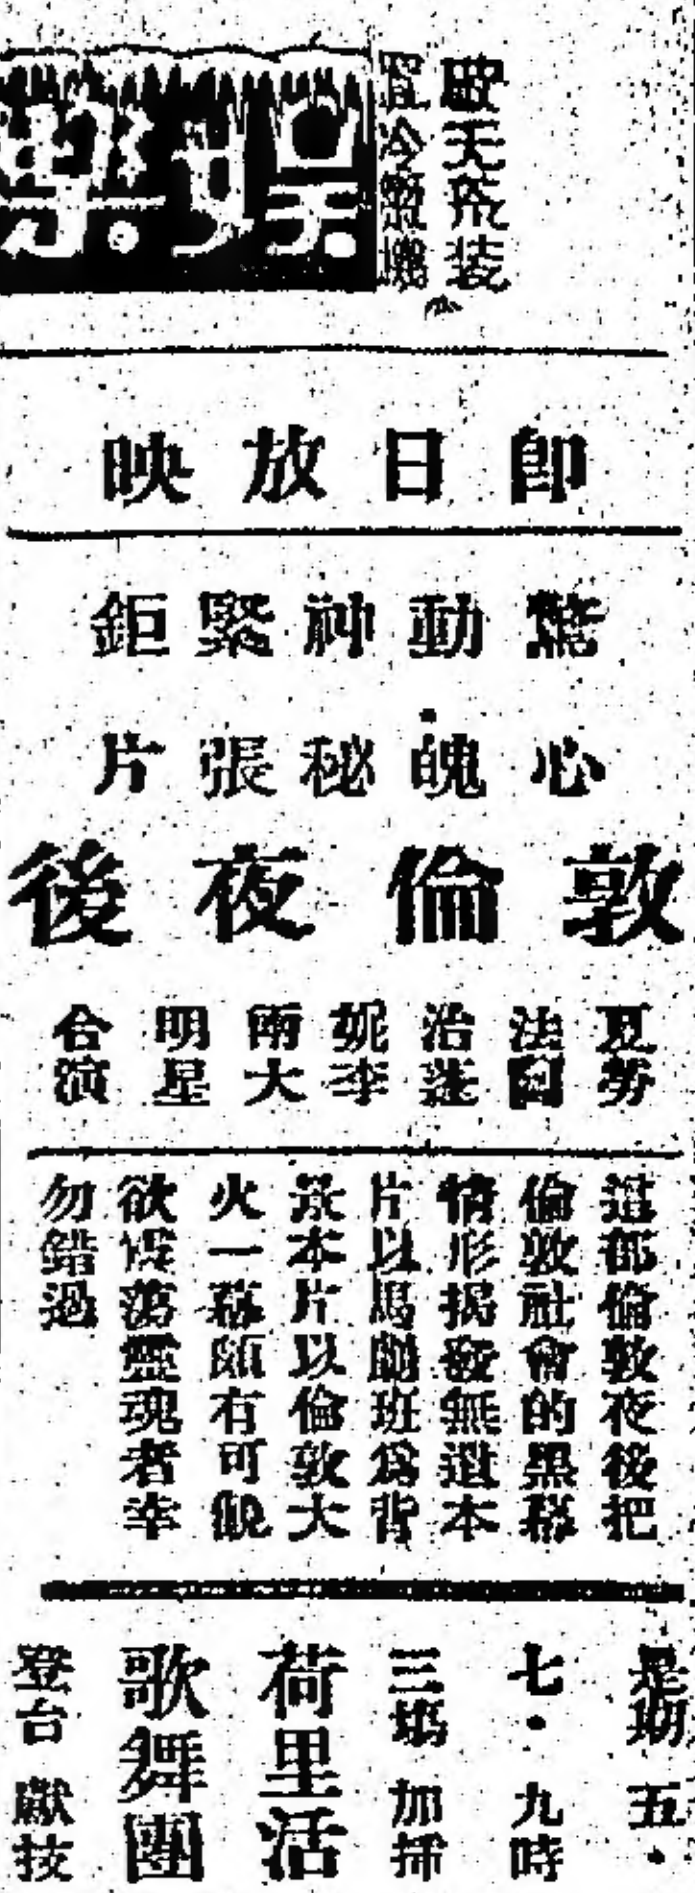 裝
置冷氣機
娛樂
即日放映
驚心
動魄
神秘
緊張
鉅片
敦倫夜後
夏勞
法
治蓬
妮李
兩大
明星
合演
這部倫敦夜後把
倫敦社會的黑幕
情形揭發無遺本
片以馬戲班爲背
景本片以倫敦大
火一幕頗有可觀
欲蕩靈魂者幸
勿錯過
是期五・
七・九時
三場加插
荷里活
歌舞團
登台獻技